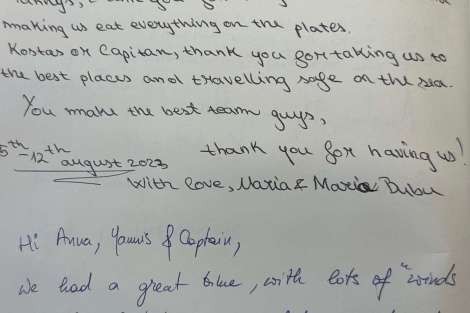 making us eat everything on the plates.
Kostas or Capitan, thank you for taking us to
the best places and travelling safe on the sea.
You make the best team guys,
thank you for having us!
5th-12th august 2023
With love, Maria & Maria Bubu
Hi Anna, Yannis & Captain,
We had a great time, with lots of "winds